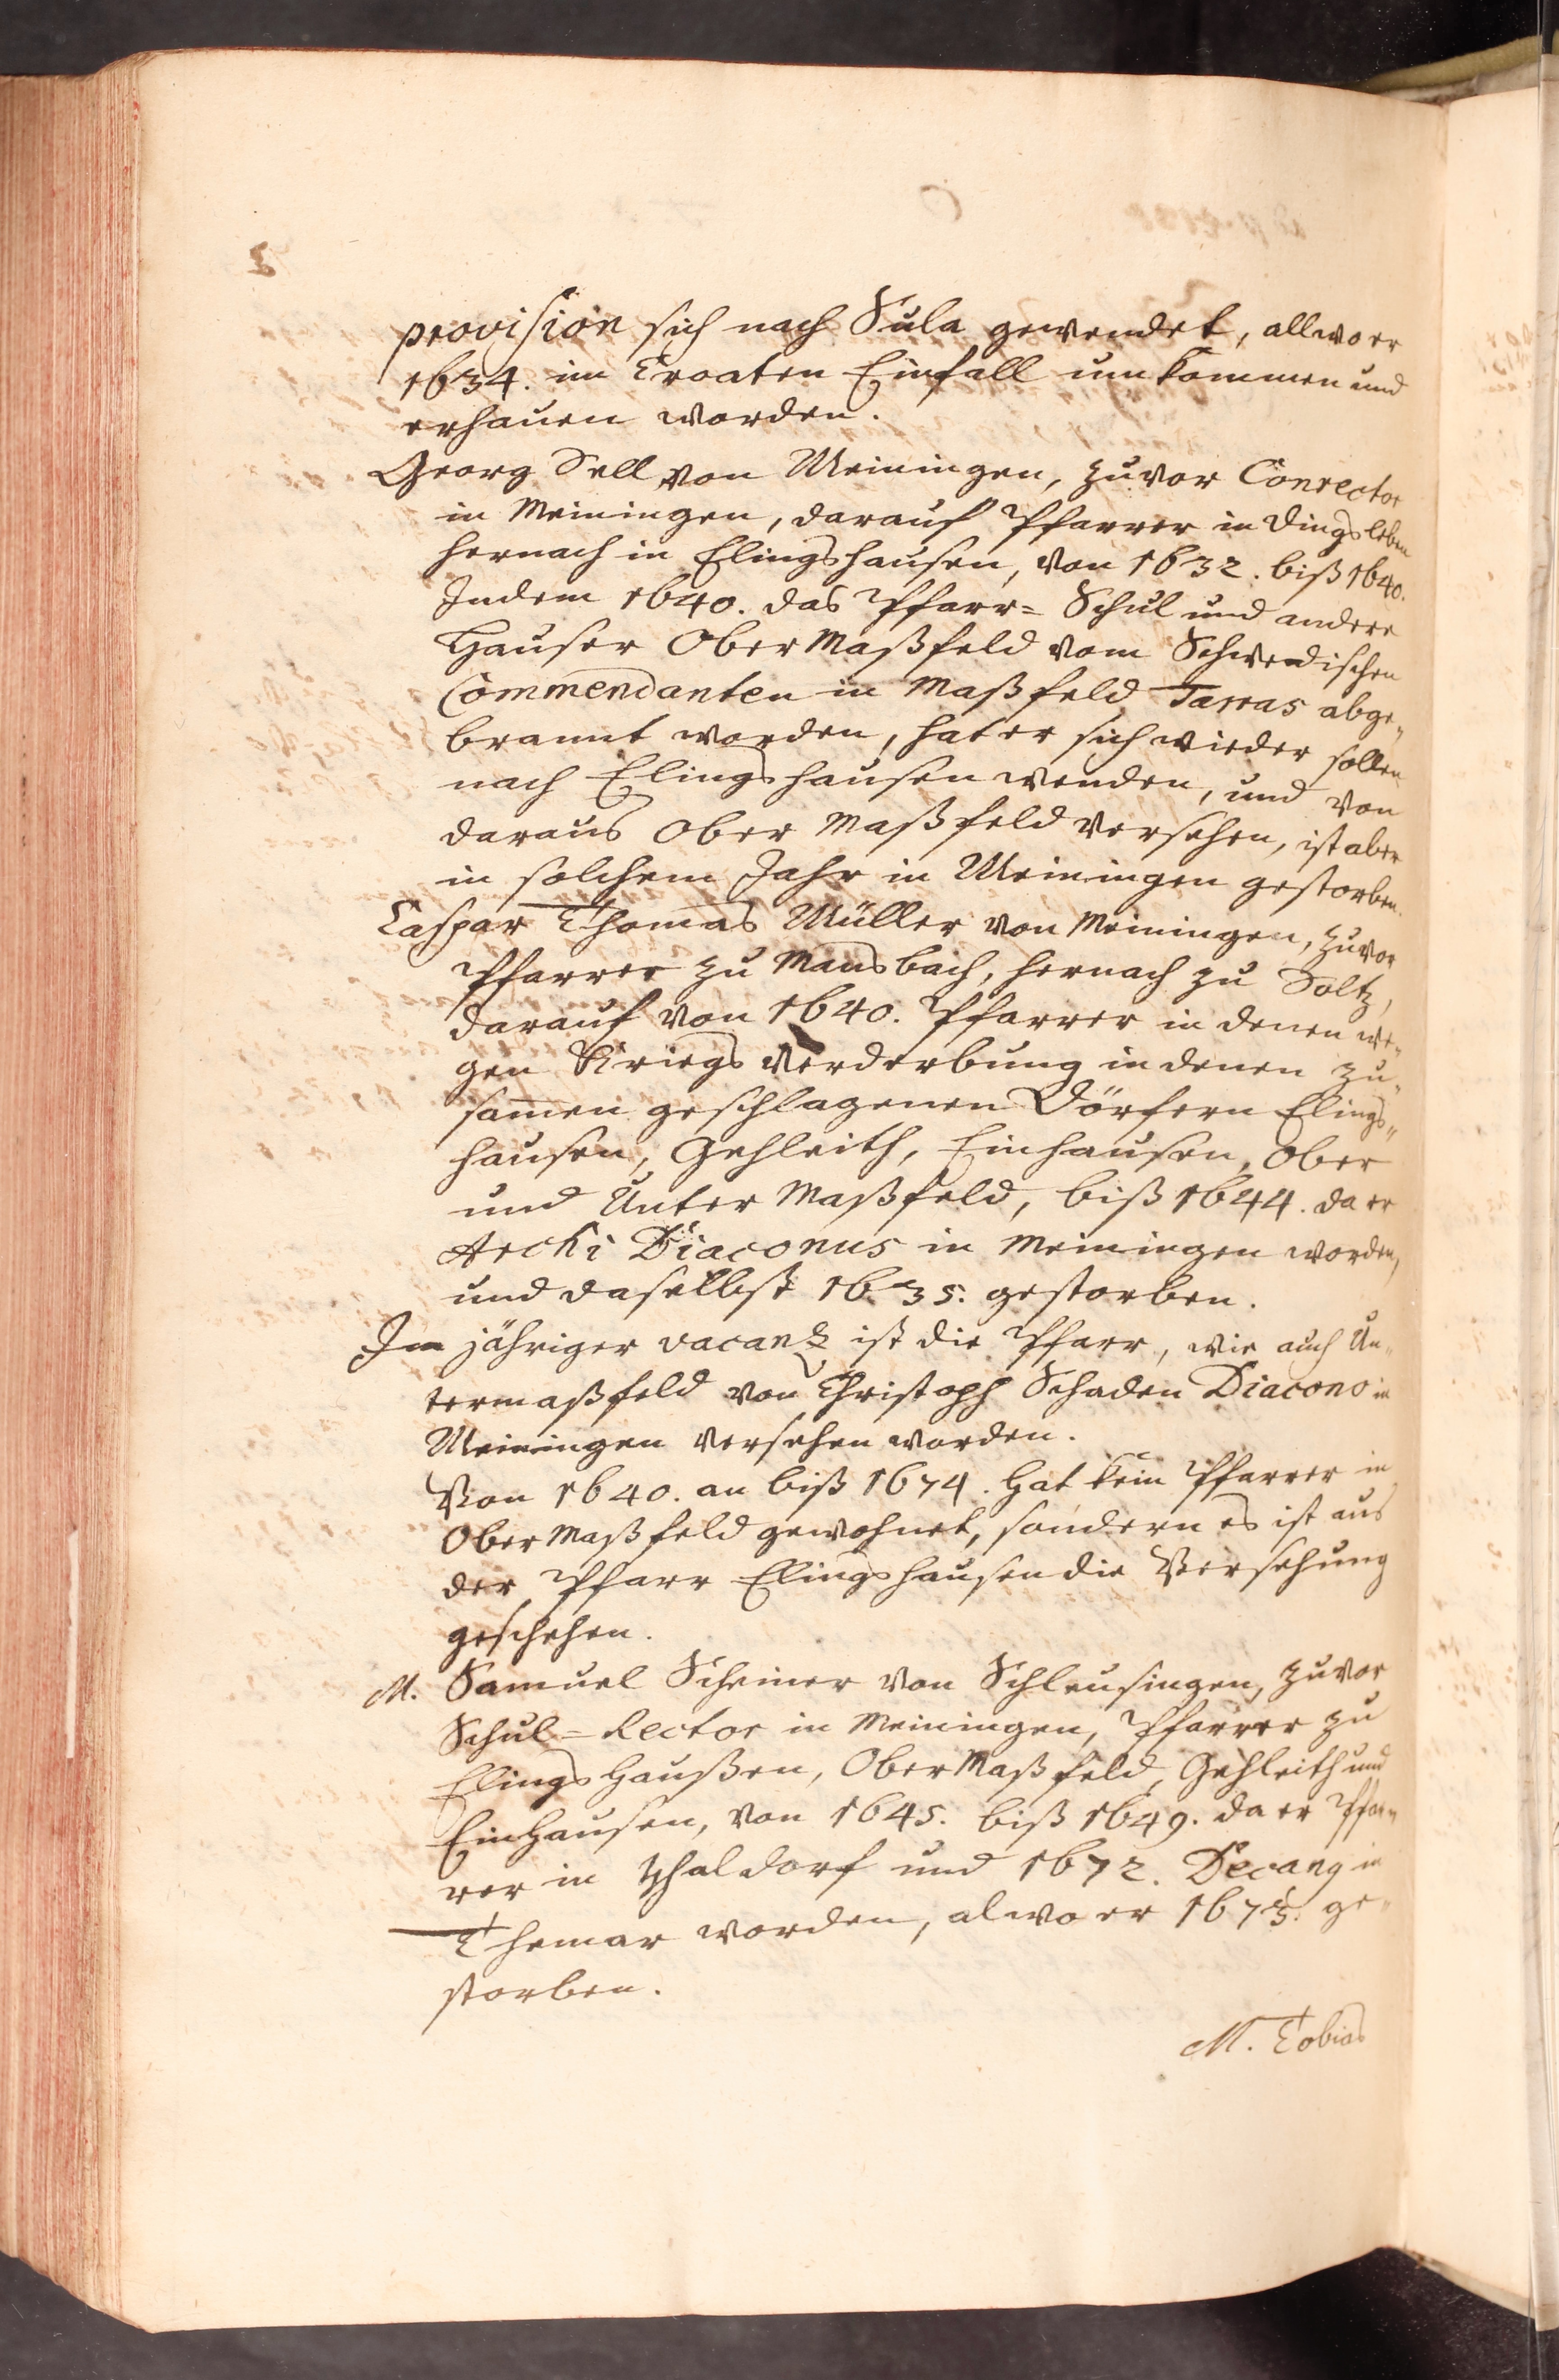 2
provision sich nach Sula gewendet, allwo er
1634. im Croaten Einfall um kommen und
erhauen worden.
Georg Sell von Meiningen, zuvor Conrector
in Meiningen, darauf Pfarrer in Dingsleben
hernach in Elingshausen, von 1632. biß 1640.
Indem 1640. das Pfarr= Schul und andere
Hauser Ober Maßfeld vom Schwedischen
Commendanten in Maßfeld Tarras abge„
brannt worden, hat er sich wieder sollen
nach Elingshausen wenden, und von
daraus Ober Maßfeld versehen, ist aber
in solchem Jahr in Meiningen gestorben.
Caspar Thomas Müller von Meiningen, zuvor
Pfarrer zu Mansbach, hernach zu Soltz,
darauf von 1640. Pfarrer in denen we„
gen Kriegs Verderbung in denen zu„
samen geschlagenen Dörfern Elings„
hausen, Gehleith, Einhausen, Ober
und Unter Maßfeld, biß 1644. da er
Archi Diaconus in Meiningen worden,
und daselbst 1635. gestorben.
In jähriger vacanz ist die Pfarr, wie auch Un„
termaßfeld von Christoph Schaden Diacono in
Meiningen versehen worden.
Von 1640. an biß 1674. hat kein Pfarrer in
Ober Maßfeld gewohnet, sondern es ist aus
der Pfarr Elingshausen die Versehung
geschehen.
M. Samuel Scheiner von Schleusingen, zuvor
Schul=Rector in Meiningen, Pfarrer zu
Elings Haußen, Ober Maßfeld, Gehleith und
Einhausen, von 1645. biß 1649. da er Pfar„
rer in Thaldorf und 1672. Decang in
Themar worden, alwo er 1675. ge„
storben.
M. Tobias